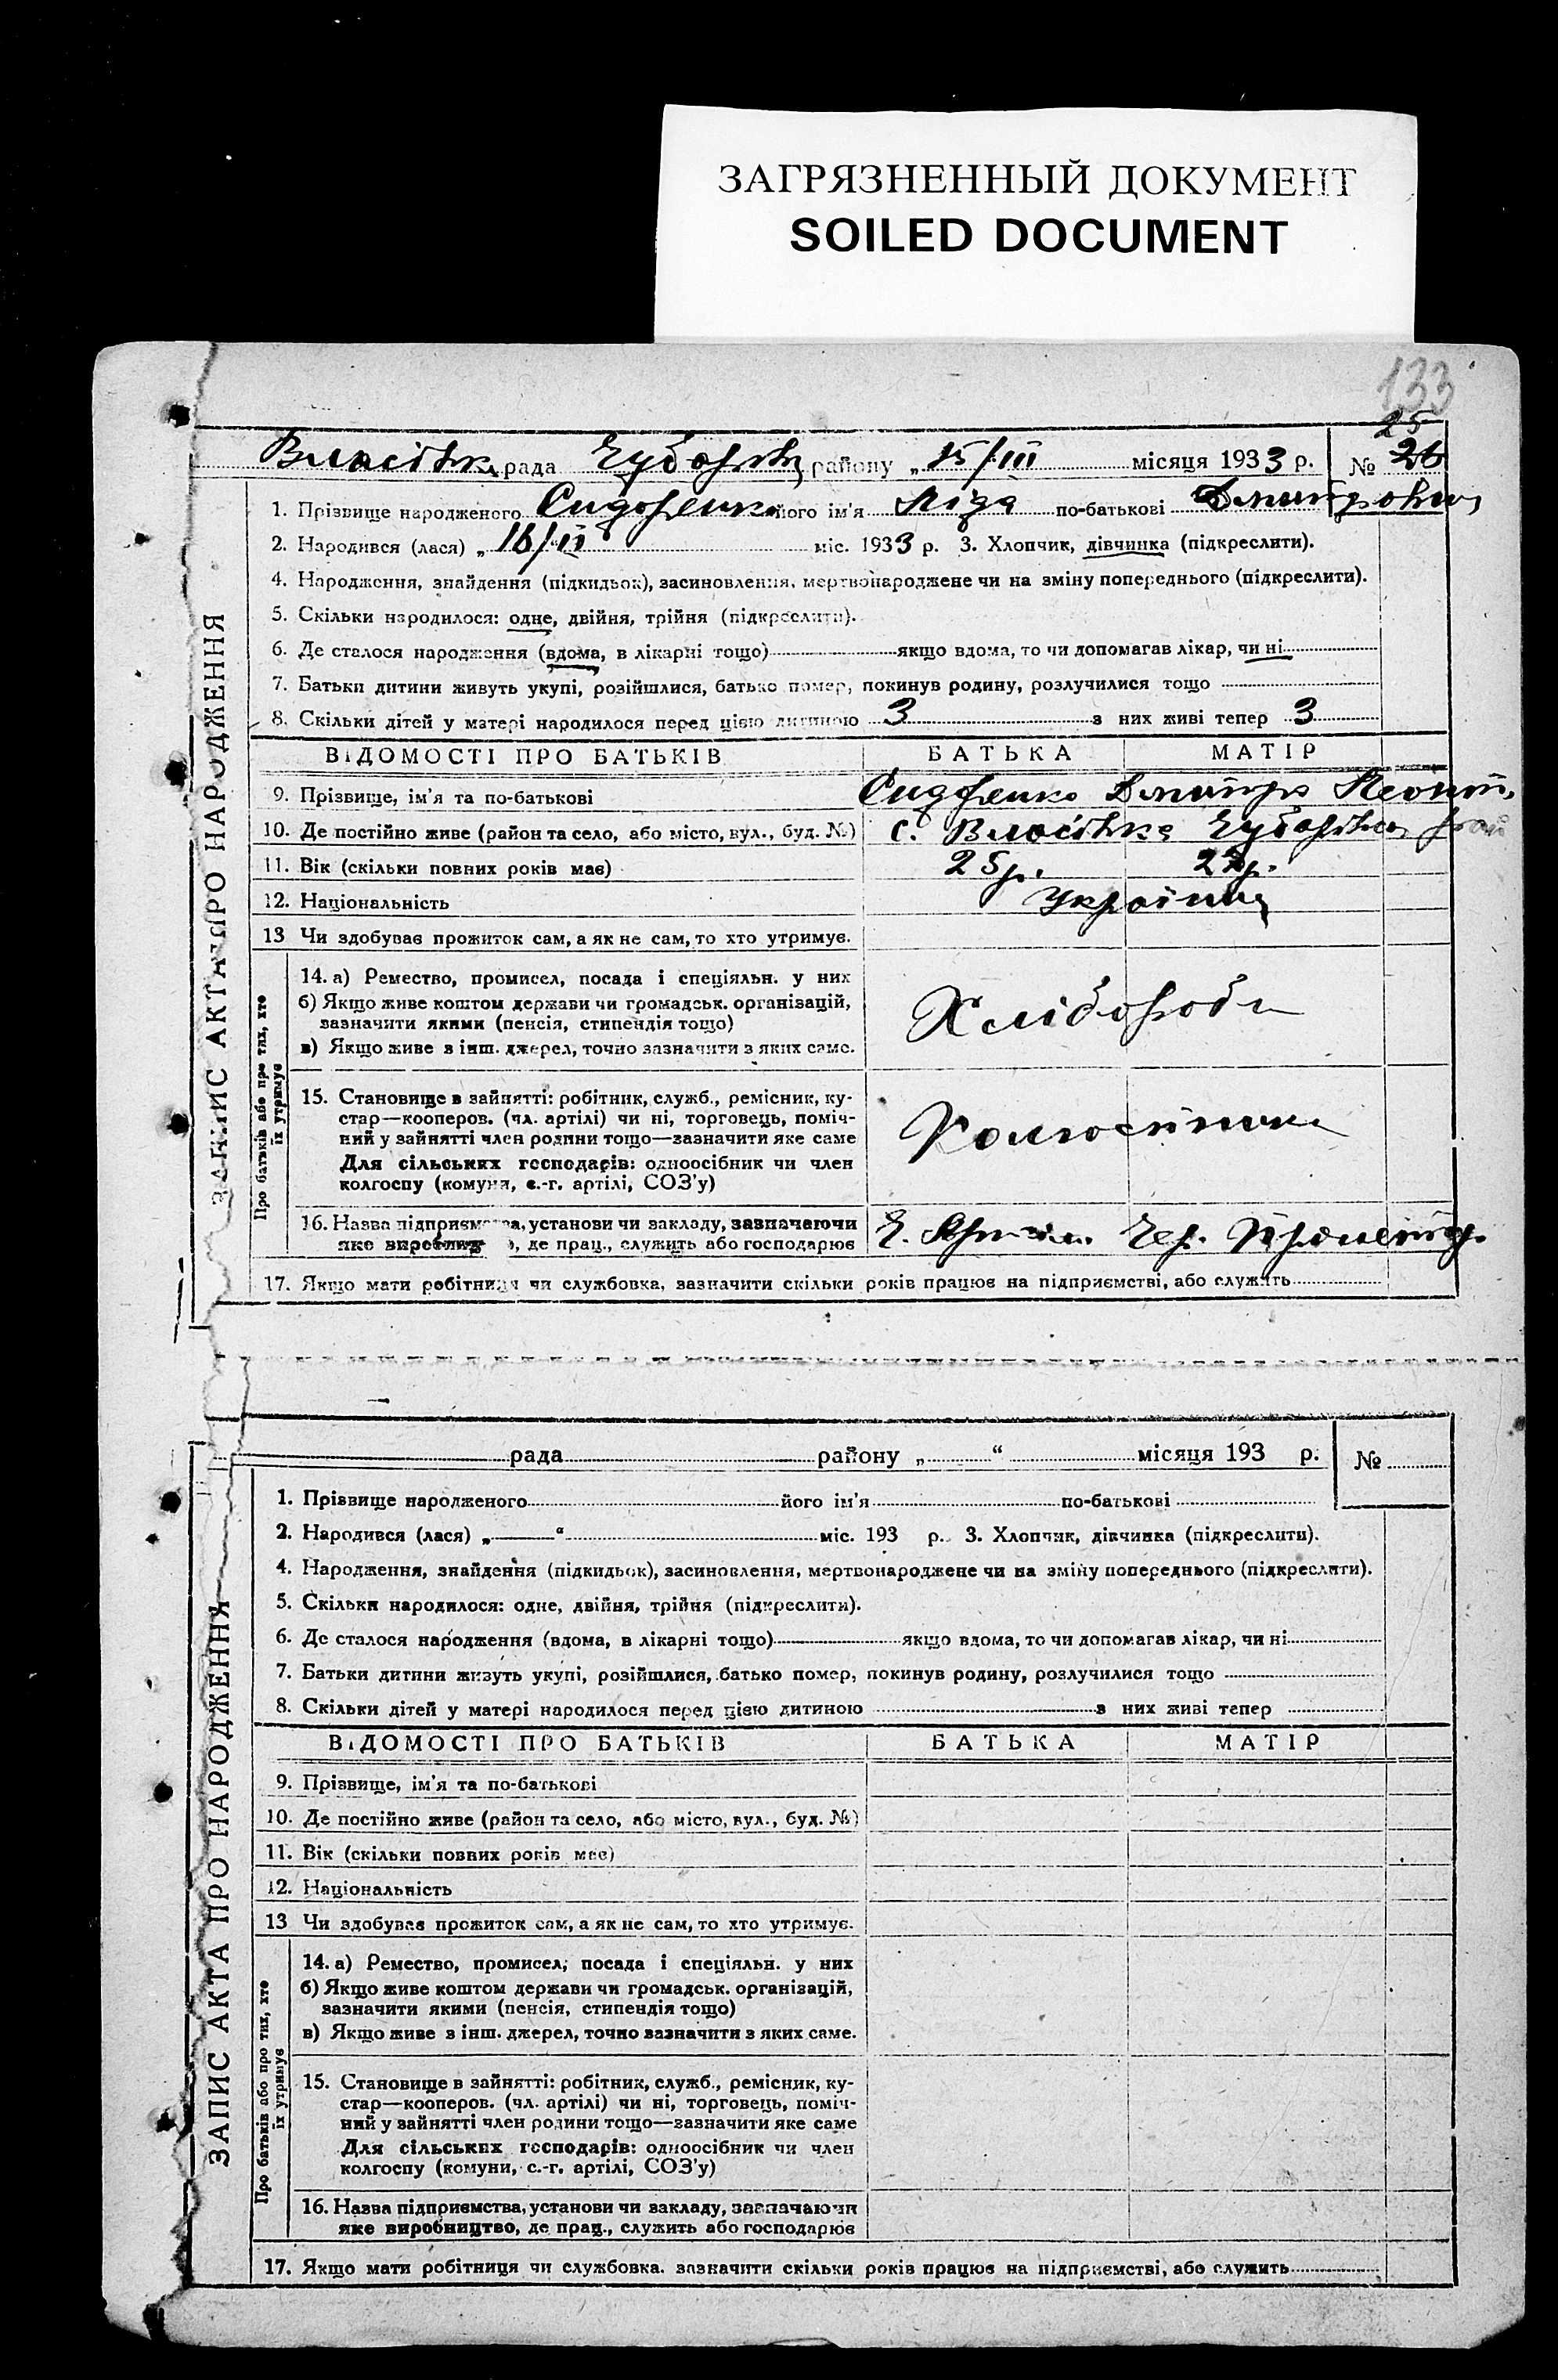 ЗАГРЯЗНЕННЫЙ ДОКУМЕНТ
SOILED DOCUMENT
133
25
рада району „15/III місяця 1933 р. № 26
ЗАПИС АКТА ПРО НАРОДЖЕННЯ
1. Прізвище народженого Сидоренко його ім'я Ліза по-батькові Дмитровна
2. Народився (лася) „16/II міс. 1933 р. 3. Хлопчик, дівчинка (підкреслити).
4. Народження, знайдення (підкидьок), засиновлення, мертвонароджене чи на зміну попереднього (підкреслити).
5. Скільки народилося: одне, двійня, трійня (підкреслити).
6. Де сталося народження (вдома, в лікарні тощо) якщо вдома, то чи допомагав лікар, чи ні
7. Батьки дитини живуть укупі, розійшлися, батько помер, покинув родину, розлучилися тощо
8. Скільки дітей у матері народилося перед цією дитиною 3 з них живі тепер 3
ВІДОМОСТІ ПРО БАТЬКІВ БАТЬКА МАТІР
9. Прізвище, ім'я та по-батькові Сидоренко Дмитро
10. Де постійно живе (район та село, або місто, вул., буд. №) с. Власівка
11. Вік (скільки повних років має) 25р. 22р.
12. Національність Українці
13 Чи здобував прожиток сам, а як не сам, то хто утримує.
Про батьків або про тих, хто
їх утримує
14. а) Ремество, промисел, посада і спеціяльн. у них
б) Якщо живе коштом держави чи громадськ. організацій,
зазначити якими (пенсія, стипендія тощо)
в) Якщо живе з інш. джерел, точно зазначити з яких саме.
Хлібороби
15. Становище в зайнятті: робітник, служб., ремісник, ку-
стар—кооперов. (чл. артілі) чи ні, торговець, поміч-
ний у зайнятті член родини тощо—зазначити яке саме
Для сільських господарів: одноосібник чи член
колгоспу (комуни, с.-г. артілі, СОЗ'у)
16. Назва підприємства, установи чи закладу, зазначаючи
яке виробництво, де прац., служить або господарює
17. Якщо мати робітниця чи службовка, зазначити скільки років працює на підприємстві, або служить
рада району „ “ місяця 193 р. №
ЗАПИС АКТА ПРО НАРОДЖЕННЯ
1. Прізвище народженого його ім'я по-батькові
2. Народився (лася) „ “ міс. 193 р. 3. Хлопчик, дівчинка (підкреслити).
4. Народження, знайдення (підкидьок), засиновлення, мертвонароджене чи на зміну попереднього (підкреслити).
5. Скільки народилося: одне, двійня, трійня (підкреслити).
6. Де сталося народження (вдома, в лікарні тощо) якщо вдома, то чи допомагав лікар, чи ні
7. Батьки дитини живуть укупі, розійшлися, батько помер, покинув родину, розлучилися тощо
8. Скільки дітей у матері народилося перед цією дитиною з них живі тепер
ВІДОМОСТІ ПРО БАТЬКІВ БАТЬКА МАТІР
9. Прізвище, ім'я та по-батькові
10. Де постійно живе (район та село, або місто, вул., буд. №)
11. Вік (скільки повних років має)
12. Національність
13 Чи здобував прожиток сам, а як не сам, то хто утримує.
Про батьків або про тих, хто
їх утримує
14. а) Ремество, промисел, посада і спеціяльн. у них
б) Якщо живе коштом держави чи громадськ. організацій,
зазначити якими (пенсія, стипендія тощо)
в) Якщо живе з інш. джерел, точно зазначити з яких саме.
15. Становище в зайнятті: робітник, служб., ремісник, ку-
стар—кооперов. (чл. артілі) чи ні, торговець, поміч-
ний у зайнятті член родини тощо—зазначити яке саме
Для сільських господарів: одноосібник чи член
колгоспу (комуни, с.-г. артілі, СОЗ'у)
16. Назва підприємства, установи чи закладу, зазначаючи
яке виробництво, де прац., служить або господарює
17. Якщо мати робітниця чи службовка, зазначити скільки років працює на підприємстві, або служить